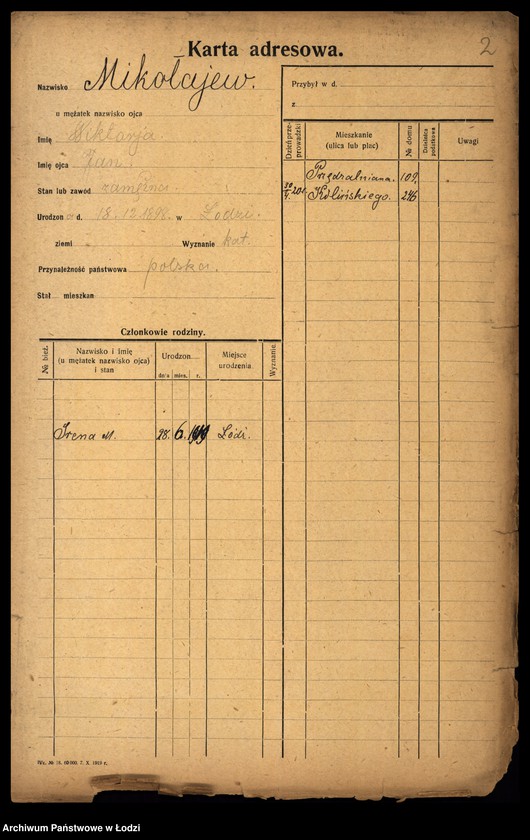 Karta adresowa.
2
Nazwisko Mikołajew.
u mężatek nazwisko ojca
Imię Wiktorja
Imię ojca Jan
Stan lub zawód zamężna.
Urodzon a d. 18.12.1898. w Łodzi.
ziemi Wyznanie kat.
Przynależność państwowa polska.
Stał. mieszkan
Członkowie rodziny.
№ bież.
Nazwisko i imię
(u mężatek nazwisko ojca)
i stan
Urodzon
dnia mies. r.
Miejsce
urodzenia.
Wyznanie.
Irena M. 28. 6. 1919 Łódź.
Przybył w d.
z
Dzień przeprowadzki
Mieszkanie
(ulica lub plac)
№ domu
Dzielnica podatkowa
Uwagi
Przędzalniana. 109.
30/4. 20r. Kilińskiego. 246
Wz. № 16. 60 000. 7. X. 1919 r.
Archiwum Państwowe w Łodzi